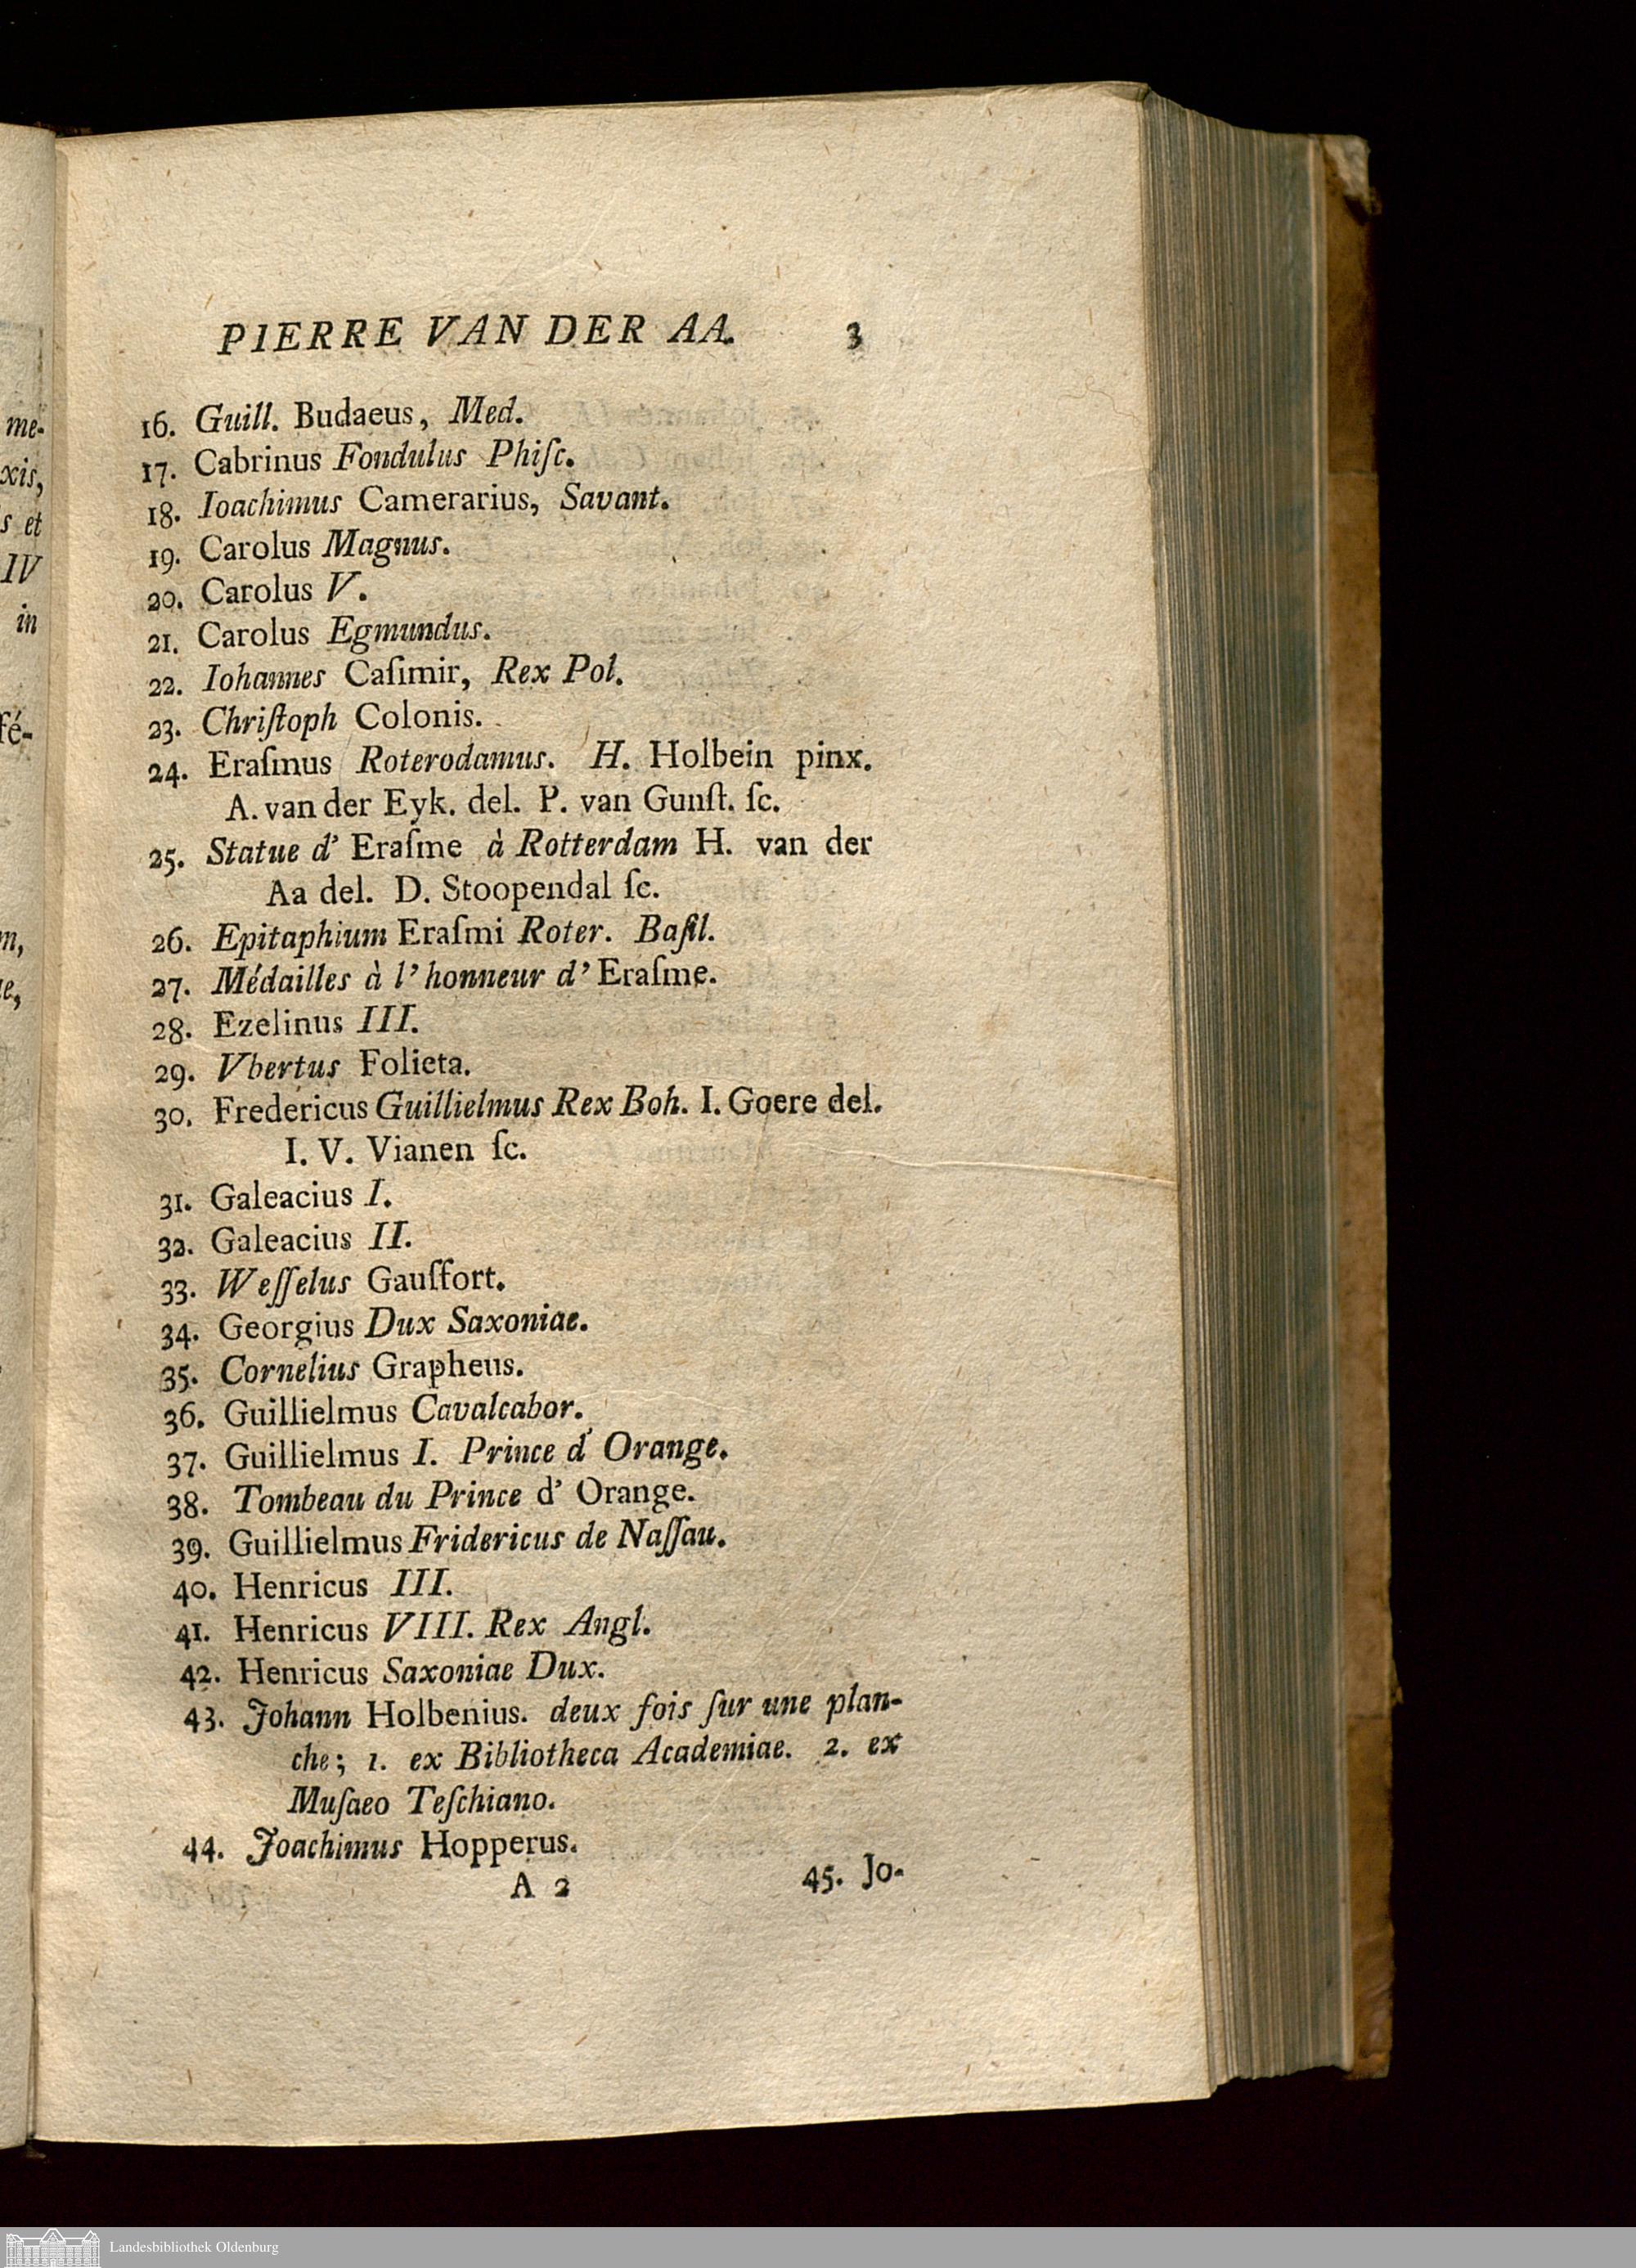 PIERRE VAN DER AA. 3
16. Guill. Budaeus, Med.
17. Cabrinus Fondulus Phiſc.
18. Ioachimus Camerarius, Savant.
19. Carolus Magnus.
20. Carolus V.
21. Carolus Egmundus.
22. Iohannes Caſimir, Rex Pol.
23. Chriſtoph Colonis.
24. Eraſmus Roterodamus. H. Holbein pinx.
A. van der Eyk. del. P. van Gunſt. ſc.
25. Statue d' Eraſme à Rotterdam H. van der
Aa del. D. Stoopendal ſc.
26. Epitaphium Eraſmi Roter. Baſil.
27. Médailles à l' honneur d' Eraſme.
28. Ezelinus III.
29. Vbertus Folieta.
30. Fredericus Guillielmus Rex Boh. I. Goere del.
I. V. Vianen ſc.
31. Galeacius I.
32. Galeacius II.
33. Weſſelus Gauſfort.
34. Georgius Dux Saxoniae.
35. Cornelius Grapheus.
36. Guillielmus Cavalcabor.
37. Guillielmus I. Prince d' Orange.
38. Tombeau du Prince d' Orange.
39. Guillielmus Fridericus de Naſſau.
40. Henricus III.
41. Henricus VIII. Rex Angl.
42. Henricus Saxoniae Dux.
43. Johann Holbenius. deux fois ſur une plan-
che; 1. ex Bibliotheca Academiae. 2. ex
Muſaeo Teſchiano.
44. Joachimus Hopperus.
A 2 45. Jo-
me-
xis,
s et
IV
in
fé-
m,
Landesbibliothek Oldenburg